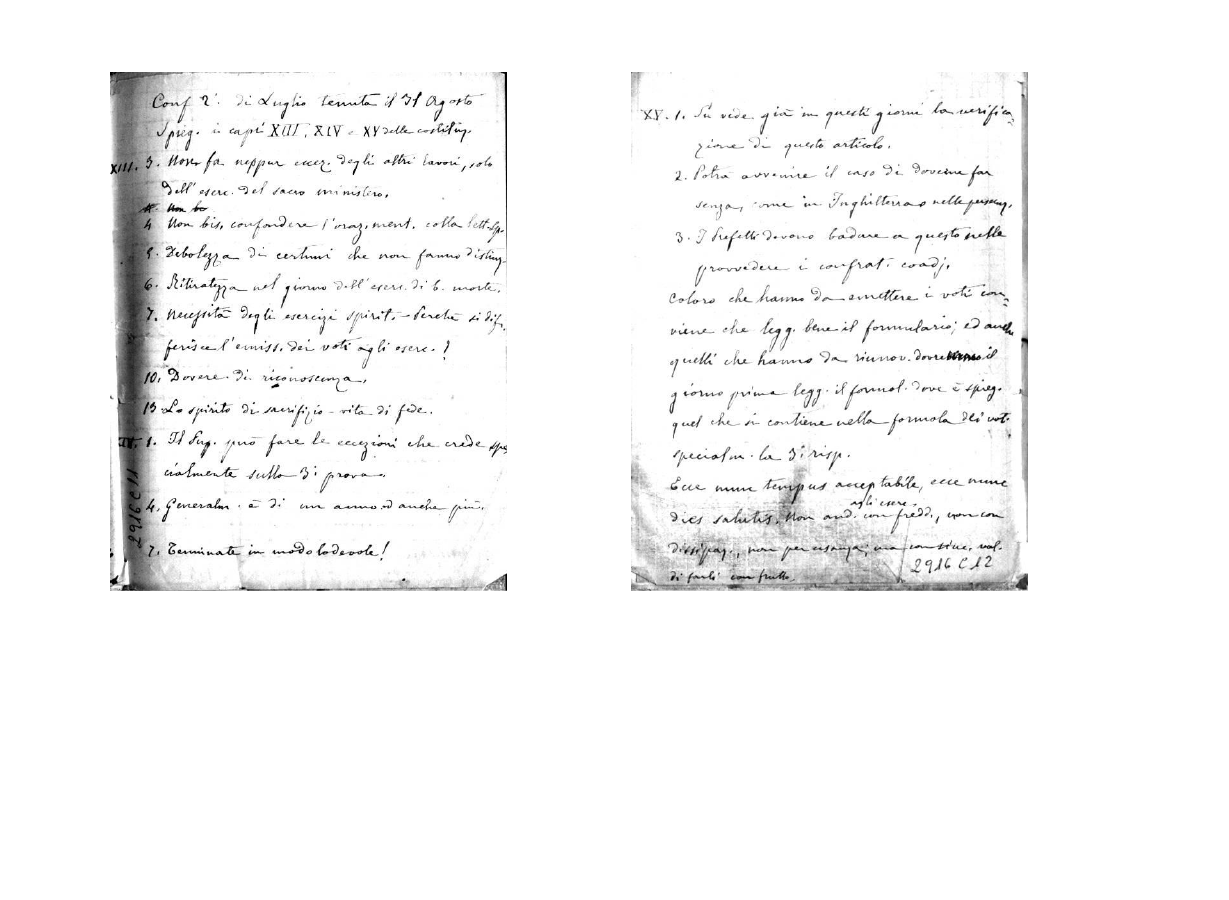 Conf 2ª di Luglio tenuta il 31 Agosto
Spieg. i capi XIII, XIV e XV delle costituz.
XIII. 3. Non fa neppur eccez. degli altri lavori, solo
dell'eserc. del sacro ministero.
4 Non bis. confondere l'oraz. ment. colla lett. sp.
5. Debolezza di certuni che non fanno disting.
6. Ritiratezza nel giorno dell'eserc. di b. morte.
7. Necessità degli esercizi spirit. - Perchè si dif-
ferisce l'emiss. dei voti agli eserc.?
10. Dovere di riconoscenza.
13 Lo spirito di sacrifizio - vita di fede.
XIV. 1. Il Sup. può fare le eccezioni che crede spe
cialmente sulla 3ª prova.
4. Generalm. è di un anno ed anche più.
7. Terminate in modo lodevole!
2916 C 11
XV. 1. Si vede già in questi giorni la verifica-
zione di questo articolo.
2. Potrà avvenire il caso di doverne far
senza, come in Inghilterra o nelle persecuz.
3. I Prefetti devono badare a questo nelle
provvedere i confrat. coadj.
Coloro che hanno da emettere i voti con-
viene che legg. bene il formulario; ed anche
quelli che hanno da rinnov. il
giorno prima legg. il formol. dove è spieg.
quel che si contiene nella formola dei voti
specialm. la 3ª risp.
Ecce nunc tempus acceptabile, ecce nunc
agli eserc.
dies salutis. Non and. con fredd., non con
dissipaz., non per usanza, ma con sinc. vol.
di farli con frutto
2916 C 12